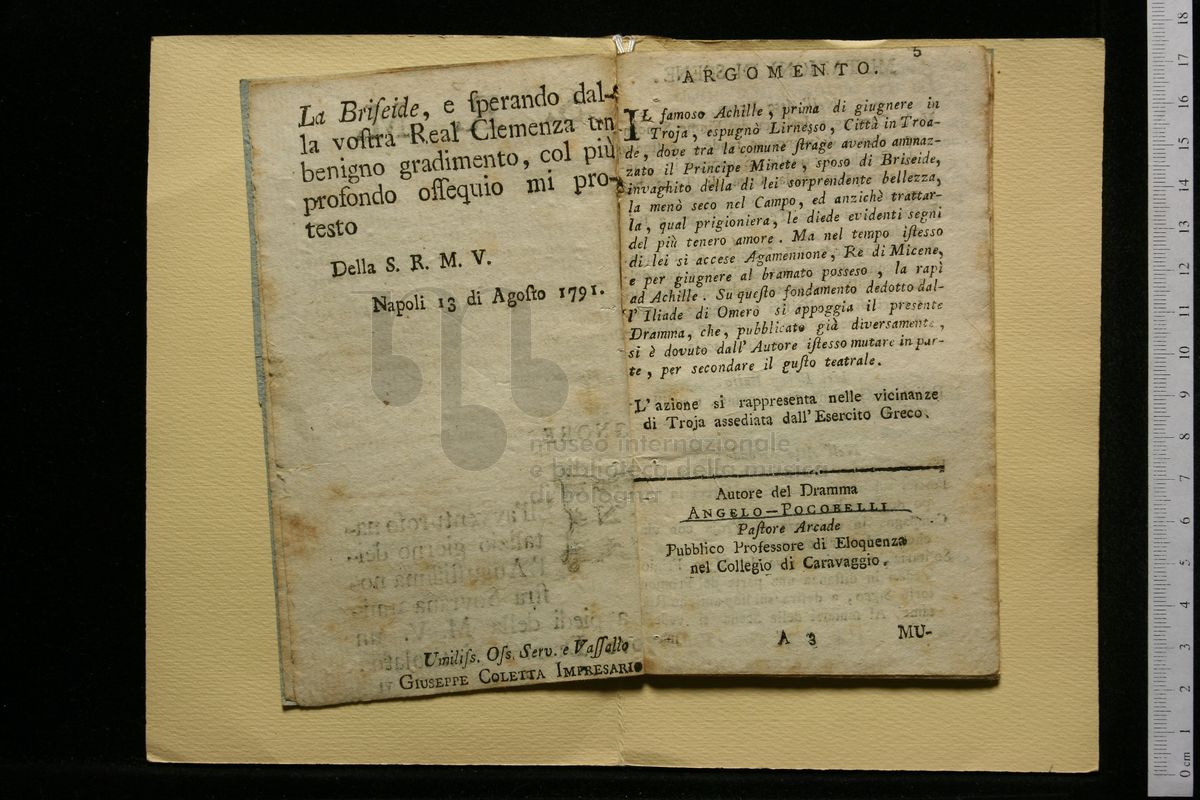 La Briſeide, e ſperando dal-
la voſtra Real Clemenza un
benigno gradimento, col più
profondo oſſequio mi pro-
testo
Della S. R. M. V.
Napoli 13 di Agoſto 1791.
Umiliſs. Oſs. Serv. e Vaſſallo
GIUSEPPE COLETTA IMPRESARIO
5
ARGOMENTO.
IL famoso Achille, prima di giugnere in
Troja, espugnò Lirnesso, Città in Troa-
de, dove tra la comune ſtrage avendo ammaz-
zato il Principe Minete, sposo di Briseide,
invaghito della di lei sorprendente bellezza,
la menò seco nel Campo, ed anzichè trattar-
la, qual prigioniera, le diede evidenti segni
del più tenero amore. Ma nel tempo iſtesso
di lei si accese Agamennone, Re di Micene,
e per giugnere al bramato possesso, la rapì
ad Achille. Su queſto fondamento dedotto dal-
l' Iliade di Omero si appoggia il presente
Dramma, che, pubblicato già diversamente,
si è dovuto dall' Autore iſtesso mutare in par-
te, per secondare il guſto teatrale.
L' azione si rappresenta nelle vicinanze
di Troja assediata dall' Esercito Greco.
Autore del Dramma
ANGELO-POCOBELLI
Paſtore Arcade
Pubblico Professore di Eloquenza
nel Collegio di Caravaggio.
A 3 MU-
museo internazionale
e biblioteca della musica
di bologna
18
17
16
15
14
13
12
11
10
9
8
7
6
5
4
3
2
1
0 cm